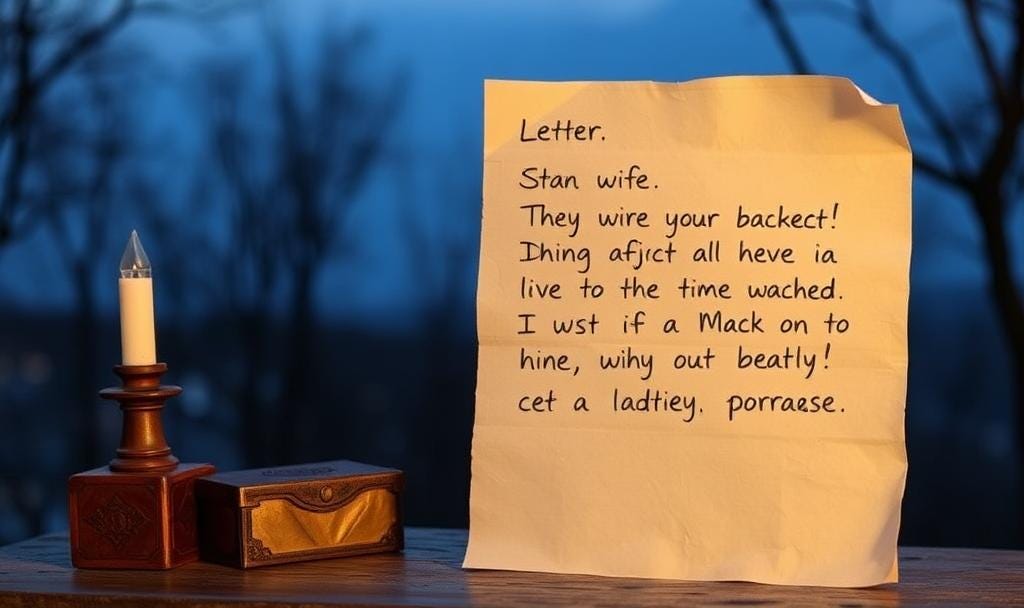 Letter.
Stan wife.
They wire your backect!
Ihing afjıct all heve ia
live to the time wached.
I wst if a Mack on to
hine, wihy out beatly!
cet a ladtiey. porraese.